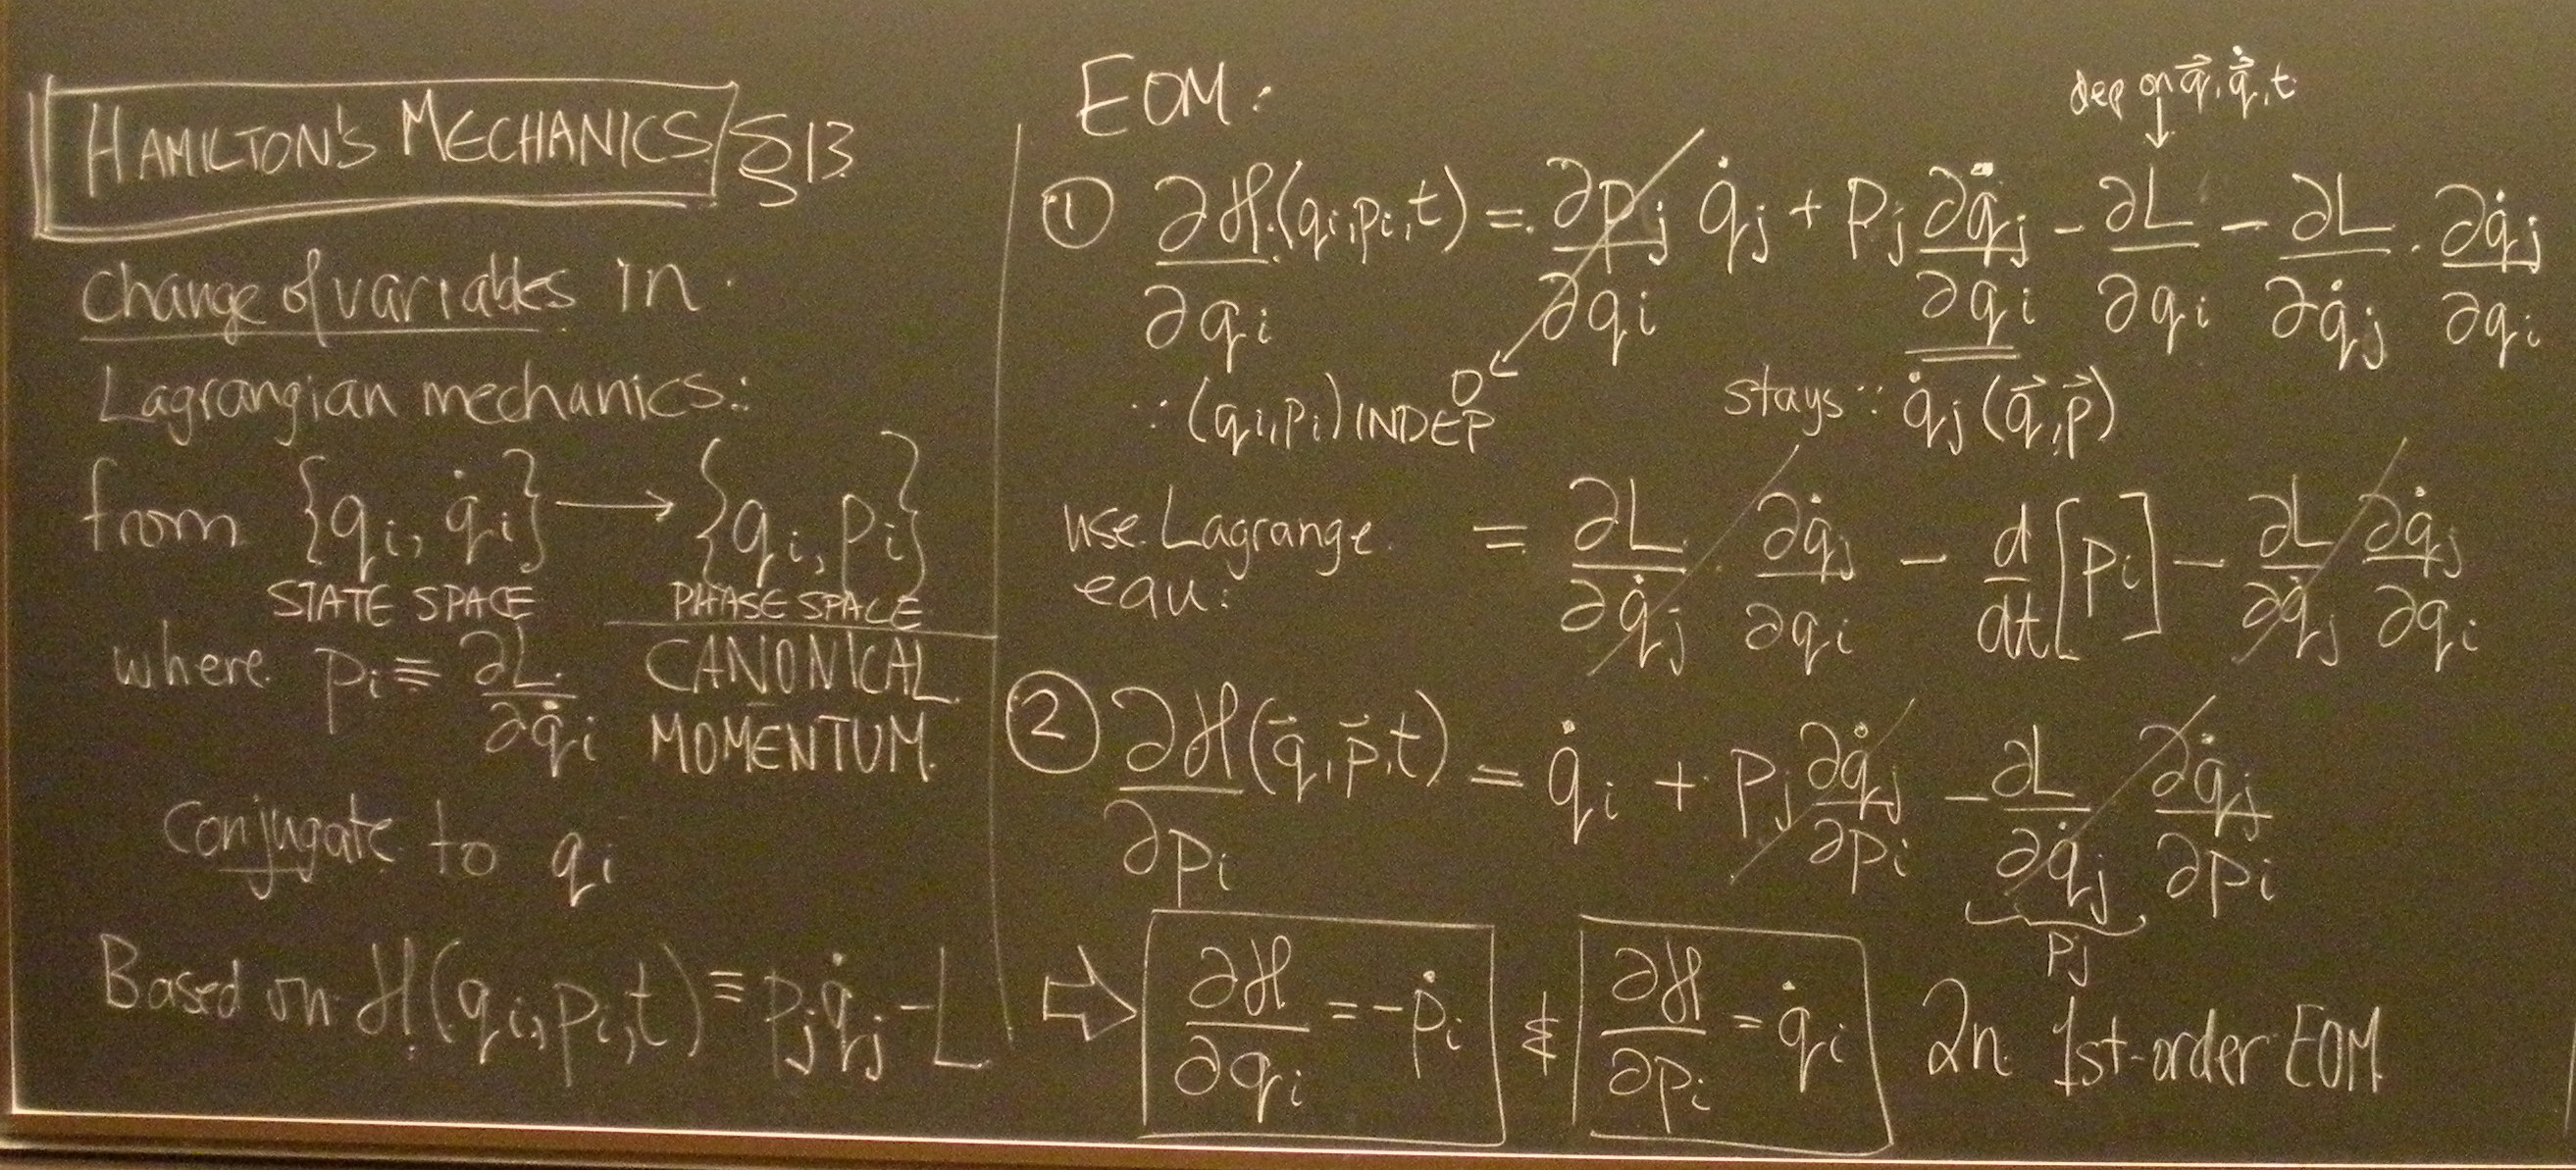 HAMILTON'S MECHANICS §13
change of variables in
Lagrangian mechanics:
from {qᵢ, q̇ᵢ} → {qᵢ, pᵢ}
STATE SPACE PHASE SPACE
where pᵢ ≡ ∂L/∂q̇ᵢ CANONICAL
MOMENTUM
conjugate to qᵢ
Based on ℋ(qᵢ, pᵢ, t) ≡ pⱼq̇ⱼ - L
EOM:
dep on q⃗, q⃗̇, t
↓
① ∂ℋ/∂qᵢ (qᵢ, pᵢ, t) = ∂pⱼ/∂qᵢ q̇ⱼ + pⱼ ∂q̇ⱼ/∂qᵢ - ∂L/∂qᵢ - ∂L/∂q̇ⱼ · ∂q̇ⱼ/∂qᵢ
0
∵ (qᵢ, pᵢ) INDEP
stays ∵ q̇ⱼ(q⃗, p⃗)
use Lagrange = ∂L/∂q̇ⱼ · ∂q̇ⱼ/∂qᵢ - d/dt [pᵢ] - ∂L/∂q̇ⱼ ∂q̇ⱼ/∂qᵢ
eqn:
② ∂ℋ/∂pᵢ (q⃗, p⃗, t) = q̇ᵢ + pⱼ ∂q̇ⱼ/∂pᵢ - ∂L/∂q̇ⱼ ∂q̇ⱼ/∂pᵢ
pⱼ
⇒ ∂ℋ/∂qᵢ = -ṗᵢ & ∂ℋ/∂pᵢ = q̇ᵢ 2n 1st-order EOM